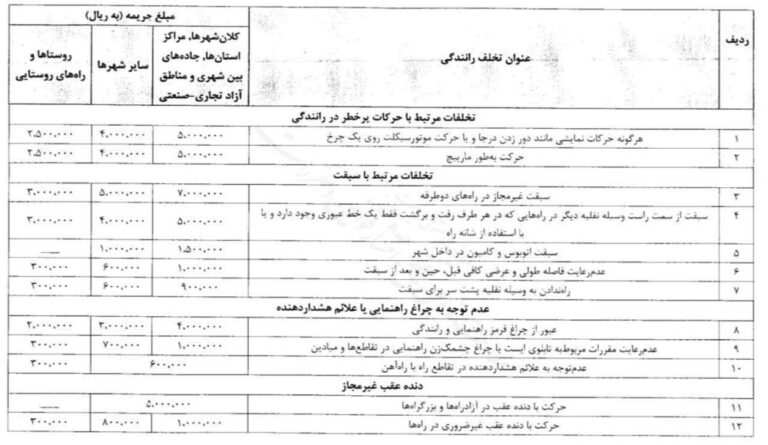 ردیف | عنوان تخلف رانندگی | مبلغ جریمه (به ریال)
کلان‌شهرها، مراکز استان‌ها، جاده‌های بین شهری و مناطق آزاد تجاری-صنعتی | سایر شهرها | روستاها و راه‌های روستایی
تخلفات مرتبط با حرکات پرخطر در رانندگی
۱ | هرگونه حرکات نمایشی مانند دور زدن درجا و یا حرکت موتورسیکلت روی یک چرخ | ۵.۰۰۰.۰۰۰ | ۴.۰۰۰.۰۰۰ | ۲.۵۰۰.۰۰۰
۲ | حرکت به‌طور مارپیچ | ۵.۰۰۰.۰۰۰ | ۴.۰۰۰.۰۰۰ | ۲.۵۰۰.۰۰۰
تخلفات مرتبط با سبقت
۳ | سبقت غیرمجاز در راه‌های دوطرفه | ۷.۰۰۰.۰۰۰ | ۵.۰۰۰.۰۰۰ | ۳.۰۰۰.۰۰۰
۴ | سبقت از سمت راست وسیله نقلیه دیگر در راه‌هایی که در هر طرف رفت و برگشت فقط یک خط عبوری وجود دارد و یا با استفاده از شانه راه | ۵.۰۰۰.۰۰۰ | ۴.۰۰۰.۰۰۰ | ۳.۰۰۰.۰۰۰
۵ | سبقت اتوبوس و کامیون در داخل شهر | ۱.۵۰۰.۰۰۰ | ۱.۰۰۰.۰۰۰ | ___
۶ | عدم‌رعایت فاصله طولی و عرضی کافی قبل، حین و بعد از سبقت | ۱.۰۰۰.۰۰۰ | ۶۰۰.۰۰۰ | ۳۰۰.۰۰۰
۷ | راه‌ندادن به وسیله نقلیه پشت سر برای سبقت | ۹۰۰.۰۰۰ | ۶۰۰.۰۰۰ | ۳۰۰.۰۰۰
عدم توجه به چراغ راهنمایی یا علائم هشداردهنده
۸ | عبور از چراغ قرمز راهنمایی و رانندگی | ۴.۰۰۰.۰۰۰ | ۳.۰۰۰.۰۰۰ | ۲.۰۰۰.۰۰۰
۹ | عدم‌رعایت مقررات مربوط‌به تابلوی ایست یا چراغ چشمک‌زن راهنمایی در تقاطع‌ها و میادین | ۱.۰۰۰.۰۰۰ | ۷۰۰.۰۰۰ | ۳۰۰.۰۰۰
۱۰ | عدم‌توجه به علائم هشداردهنده در تقاطع راه با راه‌آهن | ۶۰۰.۰۰۰ | ۳۰۰.۰۰۰
دنده عقب غیرمجاز
۱۱ | حرکت با دنده عقب در آزادراه‌ها و بزرگراه‌ها | ۵.۰۰۰.۰۰۰ | ___
۱۲ | حرکت با دنده عقب غیرضروری در راه‌ها | ۱.۰۰۰.۰۰۰ | ۸۰۰.۰۰۰ | ۳۰۰.۰۰۰